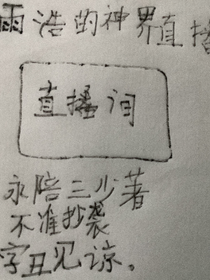 雨浩的神界直播
直播间
永陪三少著
不准抄袭
字丑见谅。